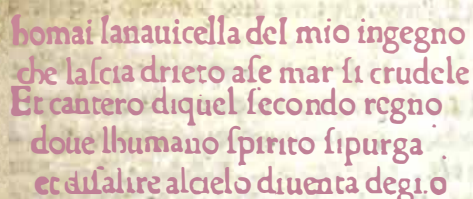 homai lanauicella del mio ingegno
che laſcia drieto aſe mar ſi crudele
Et cantero diquel ſecondo regno
doue lhumano ſpirito ſipurga
et diſalire alcielo diuenta degno